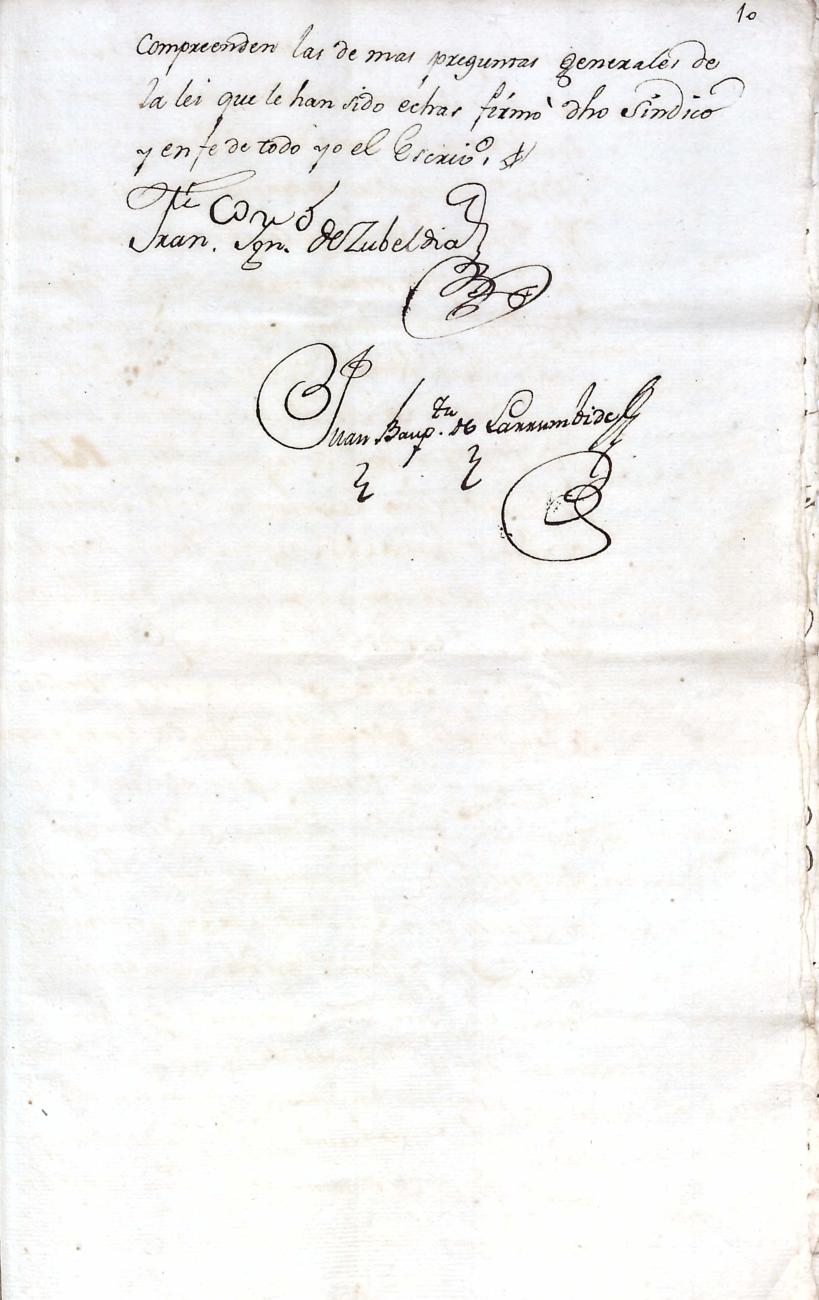 10
Compreenden las de mas preguntas generales de
la lei que le han sido echas firmò dho Sindico
y en fe de todo yo el Escriv.º
Fran. Ign.º de Zubeldia
Juan Baup.ta de Larrumbide